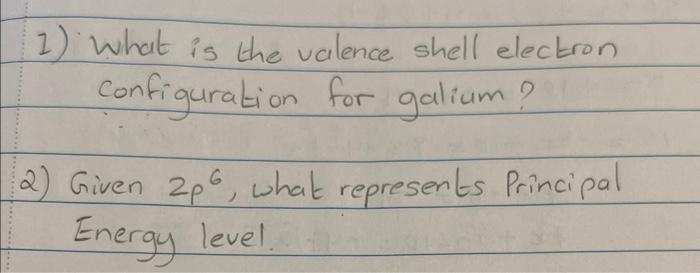 1) What is the valence shell electron
configuration for galium?
2) Given 2p⁶, what represents Principal
Energy level.